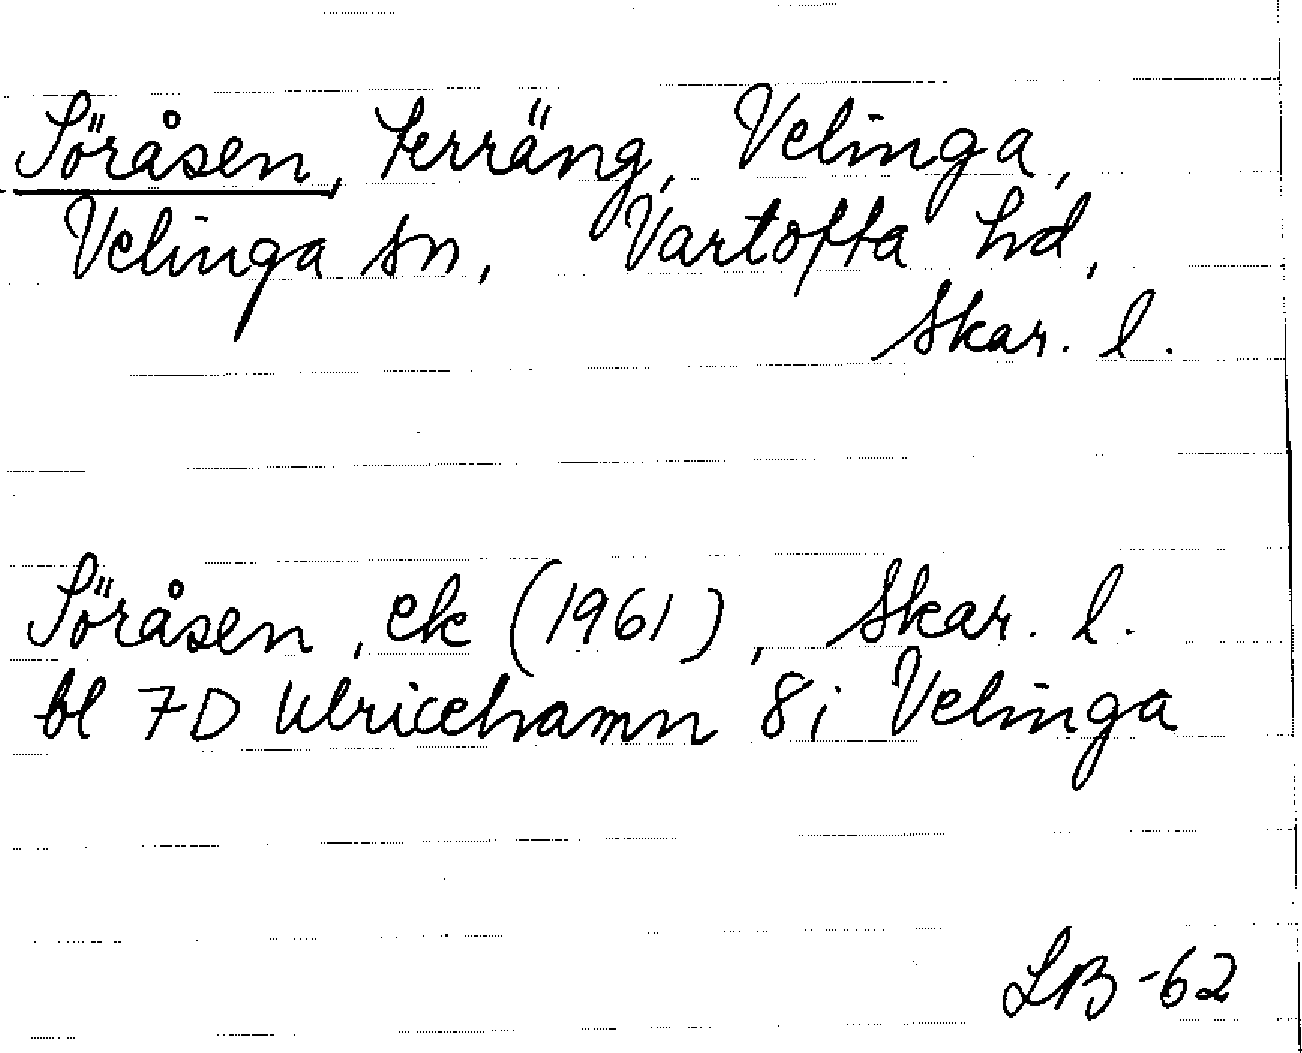 Söråsen, terräng, Velinga,
Velinga sn, Vartofta hd,
Skar. l.
Söråsen, ek (1961), Skar. l.
bl 7D Ulricehamn 8i Velinga
LB-62